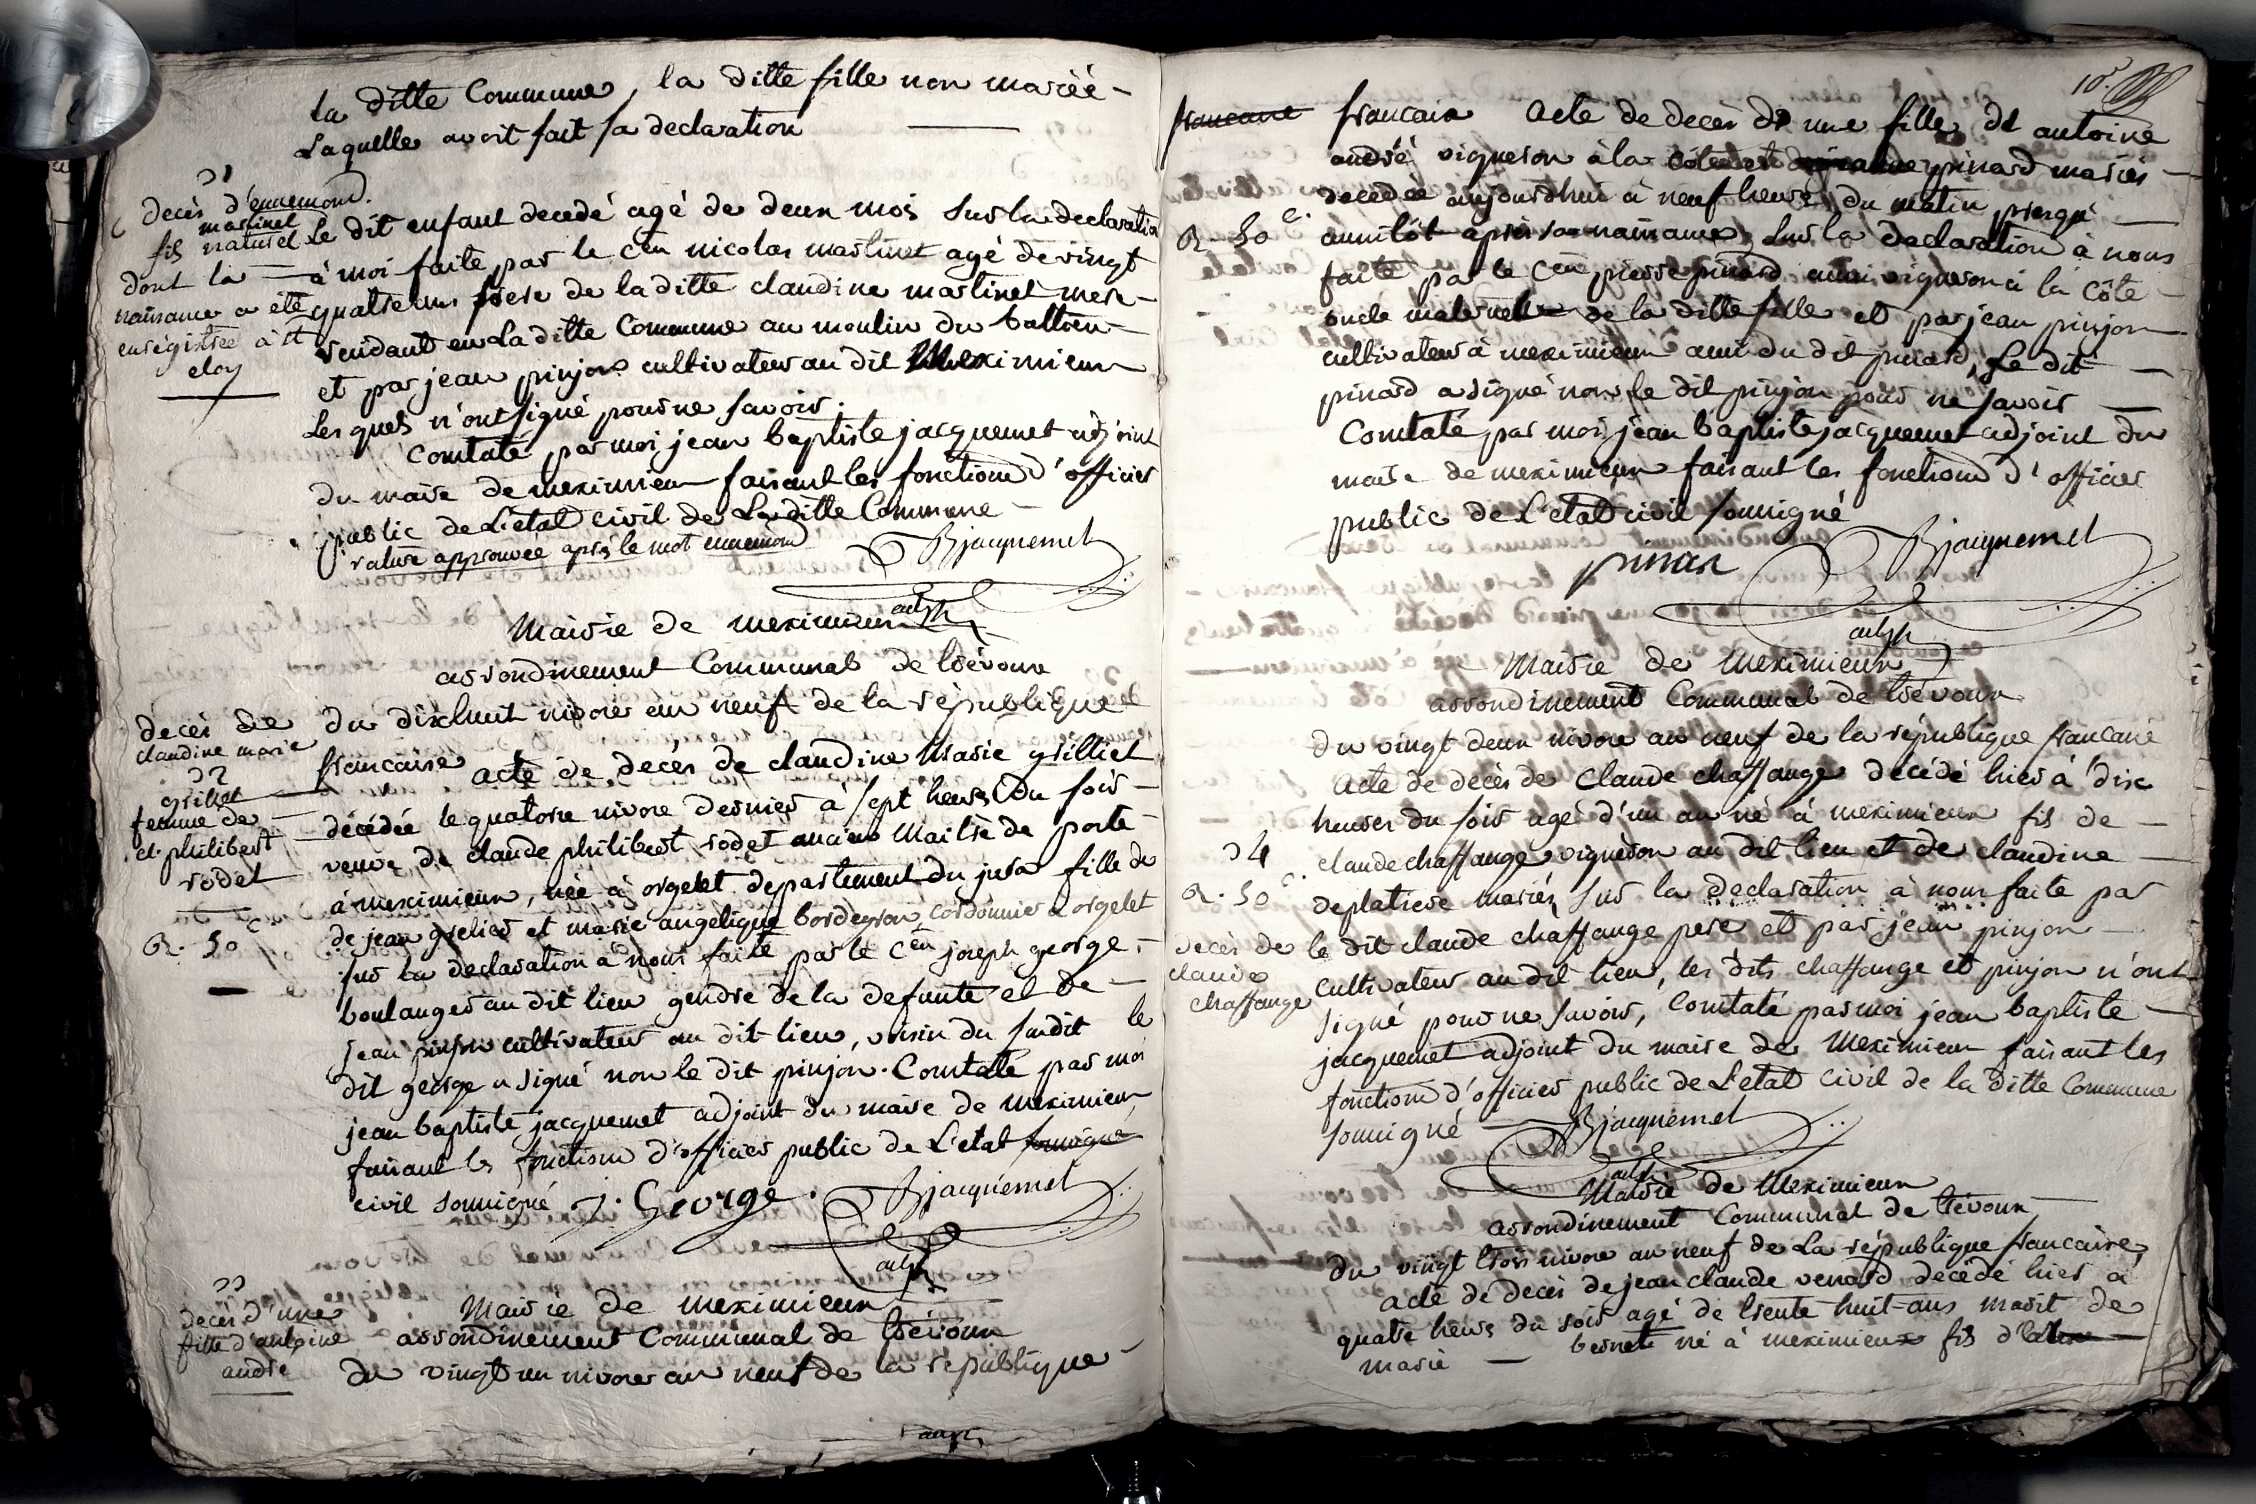 la ditte Commune, la ditte fille non mariéé
Laquelle avoit fait sa declaration
31
decès d'ennemond
martinet
fils naturel
dont la
naissance a été
enrégistrée à st
eloy
Le dit enfant decedé agé de deux mois sur la declaration
à moi faite par le cen nicolas martinet agé de vingt
quatre ans frere de la ditte claudine martinet mere
rendant en La ditte Commune au moulin du
et par jean pinjon cultivateur au dit Meximieux
Les quels n'ont signé pour ne savoir.
Constaté par moi jean baptiste jacquemet adjoint
du maire de meximieux faisant les fonctions d'officier
public de L'etat civil de La ditte Commune
rature approuvée après le mot ennemond
Bjacquemet
adjt
Mairie de meximieux
arrondinement Communal de trévoux
decès de
claudine marie
32
grillet
femme de
cl. philibert
rodet
R. 50 c
du dixhuit nivose an neuf de la république
francaise acte de decès de claudine Marie grilliet
décédée le quatorze nivose dernier à sept heures du soir
veuve de claude philibert rodet ancien Maitre de poste
à meximieux, née à orgelet departement du jura fille de
de jean grelier et marie angelique bordeyron cordonnier a orgelet
sur la declaration à nous faite par le cen joseph george
boulanger au dit lieu gendre de la defunte et de
jean pinjon cultivateur au dit lieu, voisin du susdit le
dit george a signé non le dit pinjon. Constaté par moi
jean baptiste jacquemet adjoint du maire de meximieux
faisant les fonctions d'officier public de L'etat soussigné
civil soussigné J. George. Bjacquemet
adjt
33
decès d'une
fille d'antoine
andre
Mairie de meximieux
arrondinement Communal de trévoux
du vingt un nivose an neuf de la republique
10.
francaise francaise Acte de decès de une fille de antoine
andré vigneron à la côte et de pinard mariés
decedée aujourdhui à neuf heures du matin presque
R. 50 c. aussitôt après sa naissance, sur la declaration à nous
faite par le cen pierre pinard aussi vigneron à la côte
oncle maternel de la ditte fille et par jean pinjon
cultivateur à meximieux ami du dit pinard, Le dit
pinard a signé non le dit pinjon pour ne savoir
Constaté par moi jean baptiste jacquemet adjoint du
maire de meximieux faisant les fonctions d'officier
public de L'etat civil soussigné
pinar Bjacquemet
adjt
Mairie de Meximieux
arrondinement Communal de trévoux
du vingt deux nivose an neuf de la république francaise
Acte de decès de Claude chaffange décédé hier à dix
heures du soir agé d'un an né à meximieux fils de
34
R. 50 c.
decès de
claude
chaffange
claude chaffange vigneron au dit lieu et de claudine
deplatiere mariés, sur la declaration à nous faite par
le dit claude chaffange pere et par jean pinjon
cultivateur au dit lieu, les dits chaffange et pinjon n'ont
signé pour ne savoir, Constaté par moi jean baptiste
jacquemet adjoint du maire de Meximieux faisant les
fonctions d'officier public de L'etat civil de la ditte Commune
soussigné Bjacquemet
adjt
Mairie de Meximieux
arrondinement Communal de trévoux
du vingt trois nivose an neuf de La république francaise
acte de decès de jean claude venard decédé hier à
quatre heures du soir agé de trente huit ans marit de
marie bernet né à meximieux fils d'